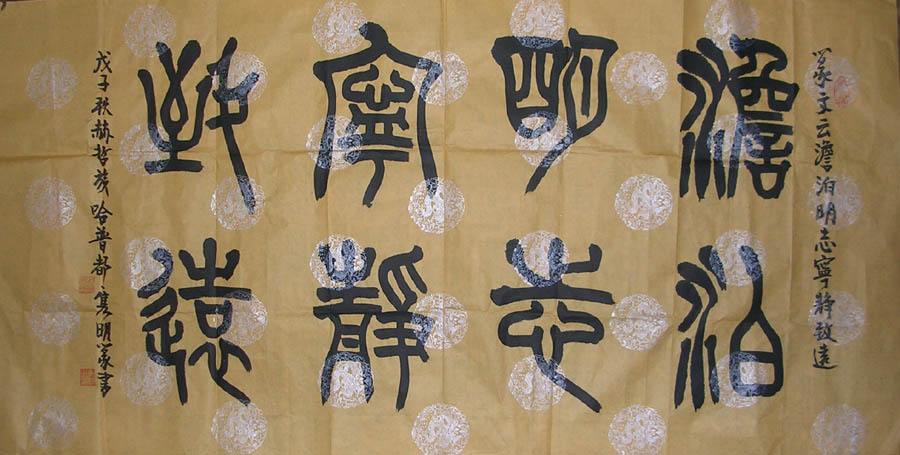 篆文云澹泊明志寧静致遠
澹泊
明志
寧靜
致遠
戊子秋赫哲族哈普都·隽明篆書